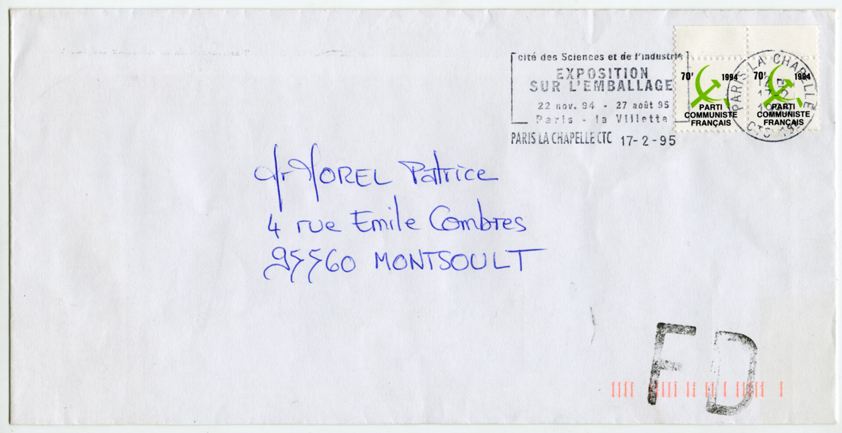 cité des Sciences et de l'Industrie
EXPOSITION
SUR L'EMBALLAGE
22 nov. 94 - 27 août 95
Paris - la Villette
PARIS LA CHAPELLE CTC 17-2-95
70f 1994
PARTI
COMMUNISTE
FRANÇAIS
70f 1994
PARTI
COMMUNISTE
FRANÇAIS
PARIS LA CHAPELLE
CTC
Mr MOREL Patrice
4 rue Emile Combres
95560 MONTSOULT
FD